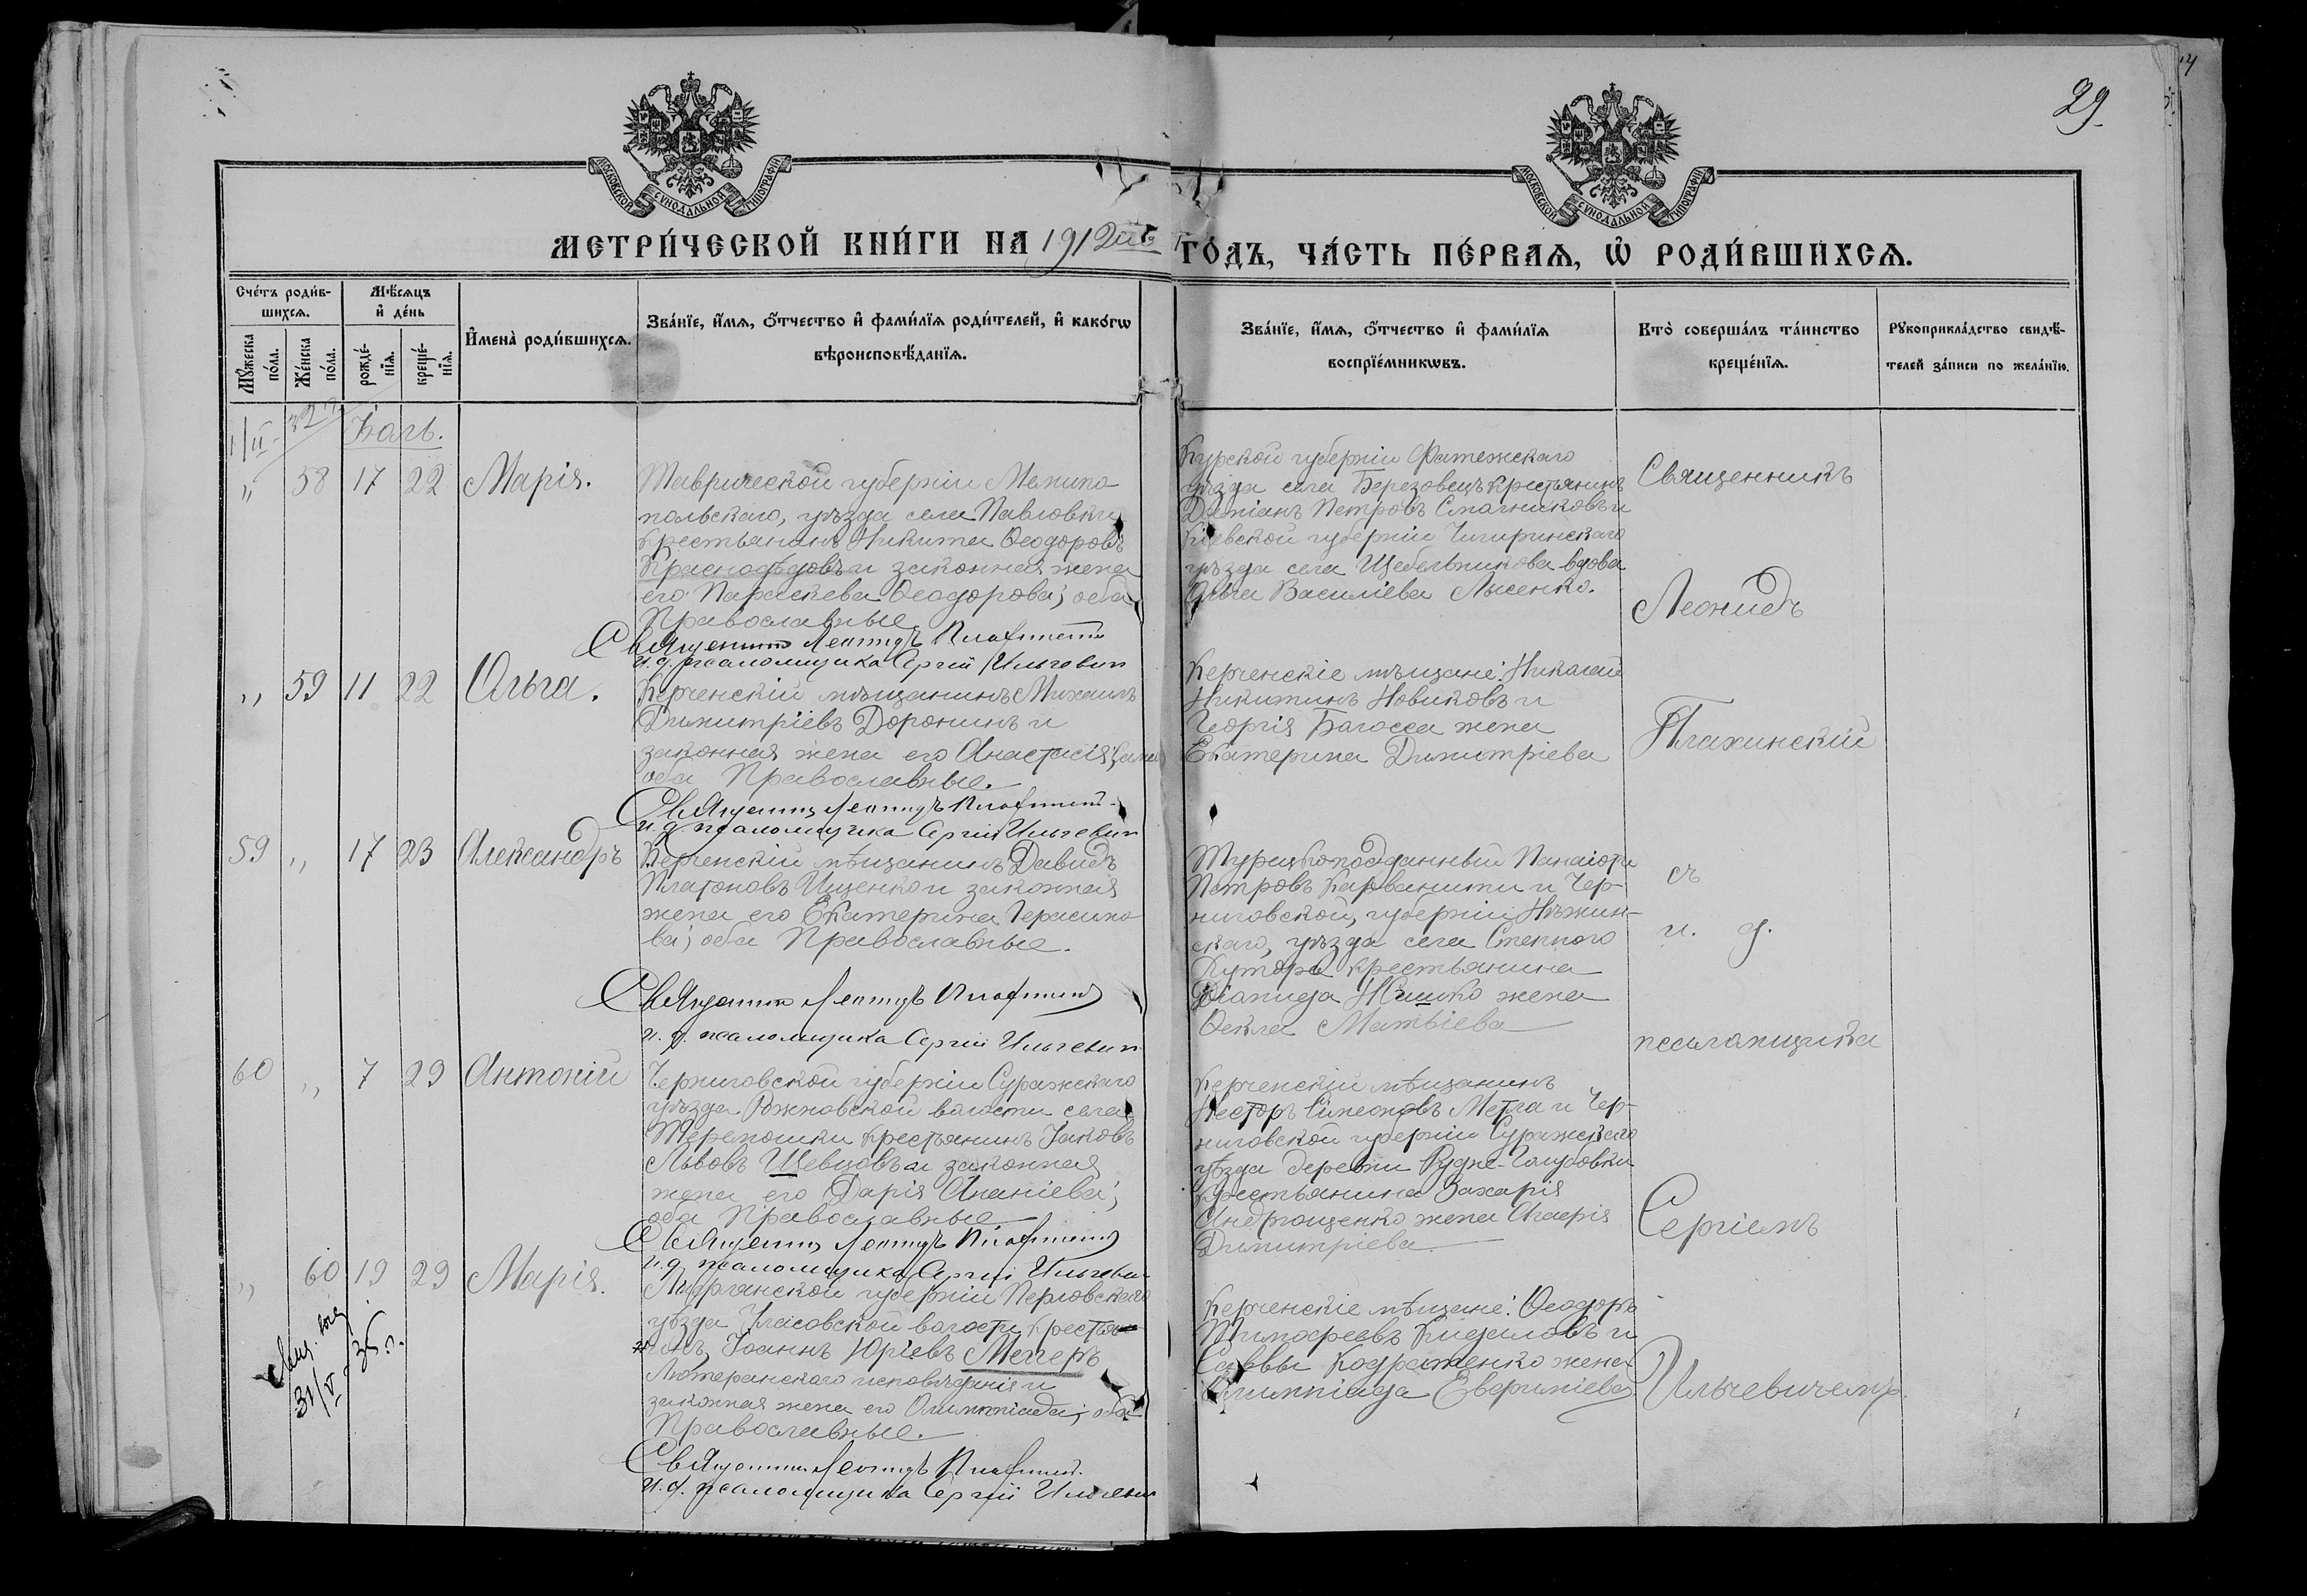 29
МОСКОВСКОЙ СѴНОДАЛЬНОЙ ТИПОГРАФІИ
МОСКОВСКОЙ СѴНОДАЛЬНОЙ ТИПОГРАФІИ
МЕТРИ́ЧЕСКОЙ КНИ́ГИ НА 1912й
ГО́ДЪ, ЧА́СТЬ ПЕ́РВАѦ, Ѽ РОДИ́ВШИХСѦ.
Сче́тъ роди́в-
шихсѧ.
Мꙋ́жеска
по́ла.
Же́нска
по́ла.
Мѣ́сѧцъ
и҆ де́нь
рожде́-
нїѧ.
креще́-
нїѧ.
И҆мена̀ роди́вшихсѧ.
Зва́нїе, и҆́мѧ, ѻ҆́тчество и҆ фами́лїѧ роди́телей, и҆ како́гѡ
вѣроисповѣ́данїѧ.
Зва́нїе, и҆́мѧ, ѻ҆́тчество и҆ фами́лїѧ
воспрїе́мникѡвъ.
Кто̀ соверша́лъ та́инство
креще́нїѧ.
Рꙋкоприкла́дство свидѣ́-
телей за́писи по жела́нїю.
1/II
" 58 17 22 Марія.
Таврической губерніи Мелито-
польскаго, уѣзда села Павловки
крестьянинъ Никита Ѳеодоровъ
Краснодѣдовъ и законная жена
его Параскева Ѳеодорова; оба
Православные.
Священникъ Леонидъ Плахинскій
и.д. псаломщика Сергій Ильчевич
Курской губерніи Фатежскаго
уѣзда села Березовецъ крестьянинъ
Даміанъ Петровъ Стагниковъ и
Кіевской губерніи Чигиринскаго
уѣзда села Щебельникова вдова
Ольга Василіева Лысенко.
Священникъ
Леонидъ
" 59 11 22 Ольга.
Керченскій мѣщанинъ Михаилъ
Димитріевъ Доронинъ и
законная жена его Анастасія
оба Православные.
Священникъ Леонидъ Плахинскій
и.д. псаломщика Сергій Ильчевич
Керченскіе мѣщане: Николай
Никитинъ Новиковъ и
Георгія Багосса жена
Екатерина Димитріева
Плахинскій
59 " 17 23 Александръ
Керченскій мѣщанинъ Давидъ
Платоновъ Ищенко и законная
жена его Екатерина Герасимо-
ва; оба Православные.
Священникъ Леонидъ Плахинскій
и.д. псаломщика Сергій Ильчевич
Турецкоподданный Панаіоти
Петровъ Карванити и Чер-
ниговской, губерніи Нѣжин-
скаго, уѣзда села Степного
Хутора крестьянина
Діамида Юшко жена
Ѳекла Матвіева
съ
и. д.
псаломщика
60 " 7 29 Антоній
Черниговской губерніи Суражскаго
уѣзда Рожновской волости села
Перепошки крестьянинъ Іаковъ
Львовъ Шевцовъ и законная
жена его Дарія Ананіева;
оба Православные
Священникъ Леонидъ Плахинскій
и.д. псаломщика Сергій Ильчевич
Керченскій мѣщанинъ
Несторъ Симеоновъ Метла и Чер-
ниговской губерніи Суражскаго
уѣзда деревни Рудне-Голубовки
крестьянина Захарія
Андрющенко жена Гликерія
Димитріева
Сергіемъ
" 60 19 29 Марія.
31/V 35 г.
Лифлянской губерніи Перновскаго
уѣзда волости крестья-
нинъ, Іоаннъ Юріевъ Мегеръ
Лютеранскаго исповѣданія и
законная жена его Олимпіада; оба
Православные.
Священникъ Леонидъ Плахинскій
и.д. псаломщика Сергій Ильчевич
Керченскіе мѣщане: Ѳеодоръ
Тимофеевъ Кидаловъ и
Саввы Кодратенко жена
Олимпіада Евфиміева
Ильчевичемъ.